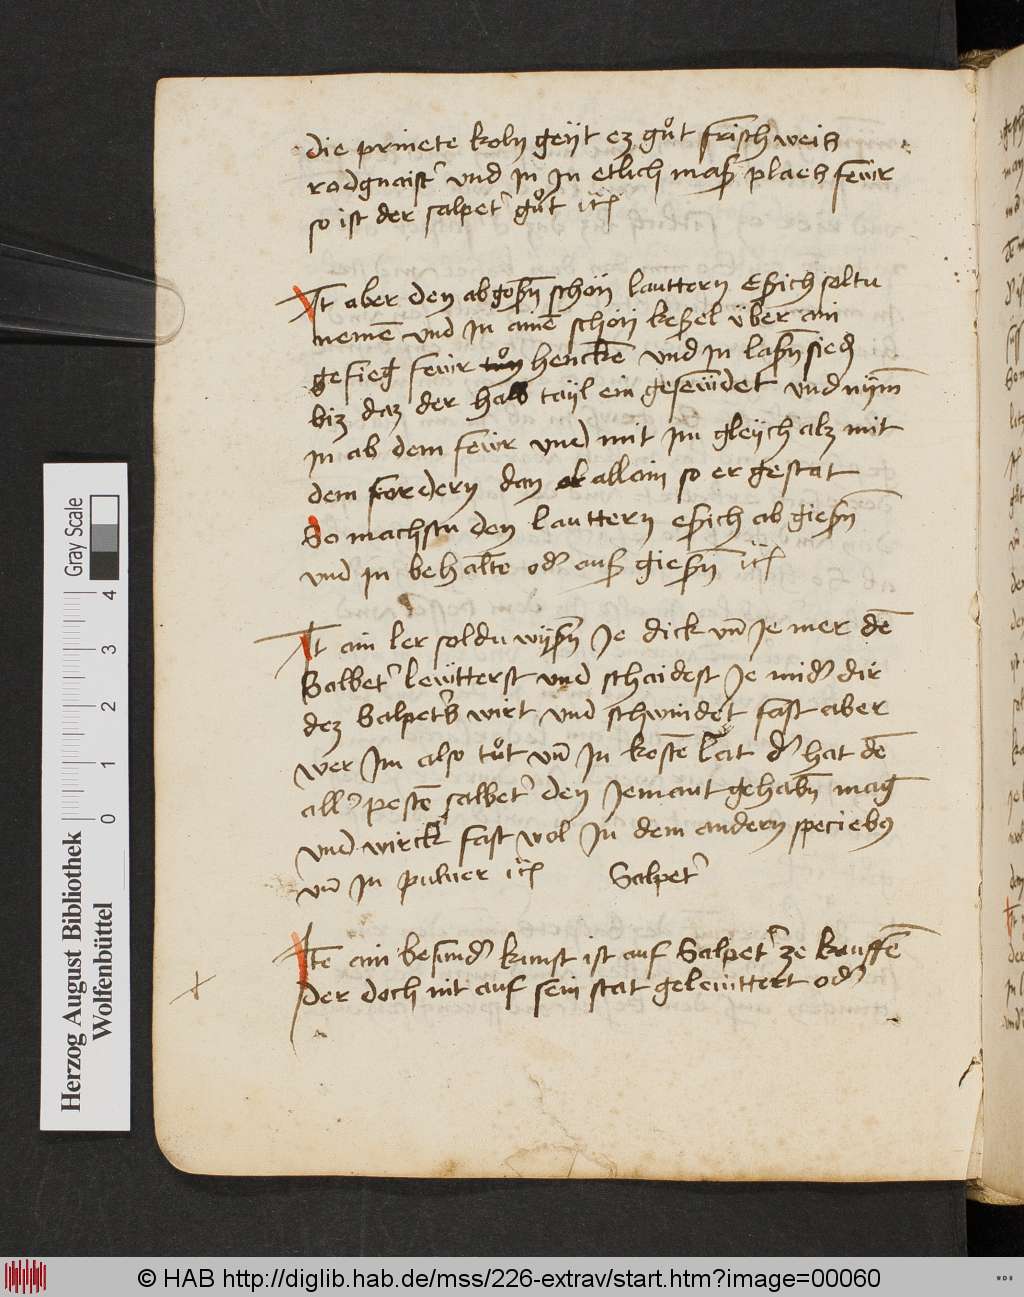 die prinete koln geÿt ez gůt frisch weis
rodgnaist' vnd in in etlich masß plaes fewr
so ist der salpet' gůt ic
It aber den abgoßn̄ schon lauttern Eßich soltu
nemē vnd in ainē schon keßel über ain
gefieg fewr tůn henckē vnd in laßn̄ sied
biz daz der halb tayl ein gesewdet vnd nÿm
in ab dem fewr vnd mit im gleÿch alz mit
dem fordern dan allain so er gestat
So machstu den lauttern eßich ab gießn̄
vnd in behaltē od' auß gießn̄ ic
It ain ler soldu wÿßn̄ Je dick vn̄ Je mer dē
Salbet' lewtterst vnd schaidest Je mid' dir
dez Salpet's wirt vnd schwindet fast aber
wer Im also tůt vn̄ In kostē lat d' hat dē
all' pestē salbet' den Jemant gehabn̄ mag
vnd wirck fast wol In dem andern speciebus
vn̄ In puluer ic Salpet'
Itē ain besund' kunst ist auf Salpet' ze kauffē
der doch nit auf sein stat gelewttert od'
Herzog August Bibliothek
Wolfenbüttel
Gray Scale
0 1 2 3 4
© HAB http://diglib.hab.de/mss/226-extrav/start.htm?image=00060